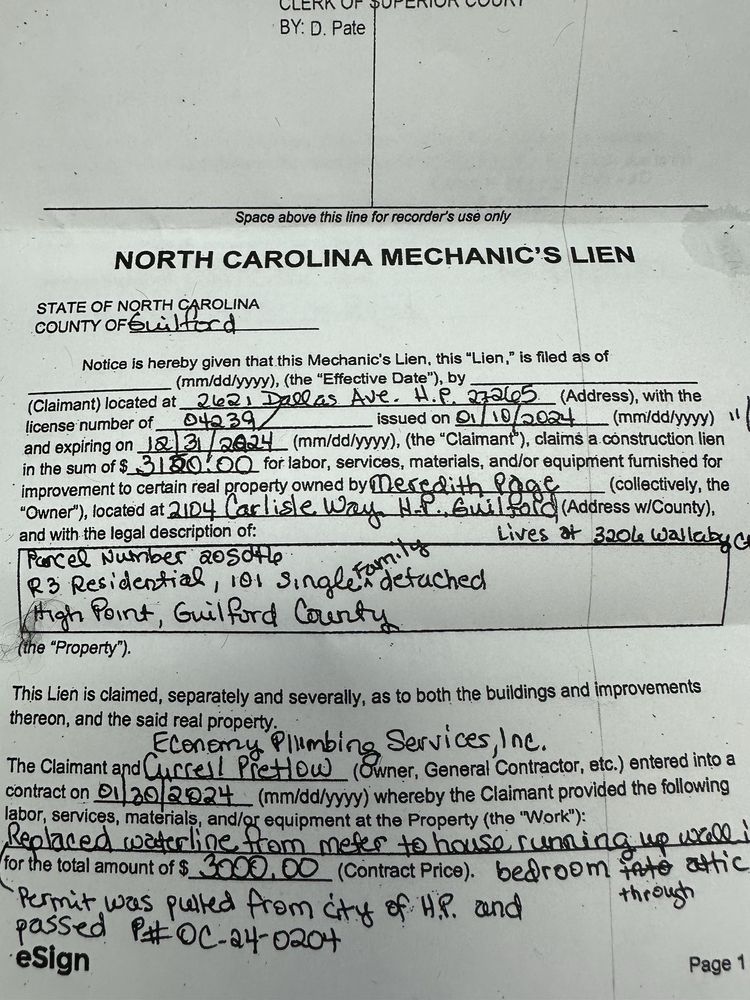 CLERK OF SUPERIOR COURT
BY: D. Pate
Space above this line for recorder's use only
NORTH CAROLINA MECHANIC'S LIEN
STATE OF NORTH CAROLINA
COUNTY OF Guilford
Notice is hereby given that this Mechanic's Lien, this "Lien," is filed as of
(mm/dd/yyyy), (the "Effective Date"), by
(Claimant) located at 2621 Dallas Ave. H.P. 27265 (Address), with the
license number of 04239 issued on 01/10/2024 (mm/dd/yyyy)
and expiring on 12/31/2024 (mm/dd/yyyy), (the "Claimant"), claims a construction lien
in the sum of $ 3180.00 for labor, services, materials, and/or equipment furnished for
improvement to certain real property owned by Meredith Page (collectively, the
"Owner"), located at 2104 Carlisle Way H.P., Guilford (Address w/County),
and with the legal description of: Lives at 3206 Wallaby
Parcel Number 205046
R3 Residential, 101 Single Family detached
High Point, Guilford County
(the "Property").
This Lien is claimed, separately and severally, as to both the buildings and improvements
thereon, and the said real property.
Economy Plumbing Services, Inc.
The Claimant and Currell Pretlow (Owner, General Contractor, etc.) entered into a
contract on 01/30/2024 (mm/dd/yyyy) whereby the Claimant provided the following
labor, services, materials, and/or equipment at the Property (the "Work"):
Replaced waterline from meter to house running up wall i
for the total amount of $ 3000.00 (Contract Price). bedroom into attic
through
Permit was pulled from city of H.P. and
passed P# OC-24-0204
eSign
Page 1